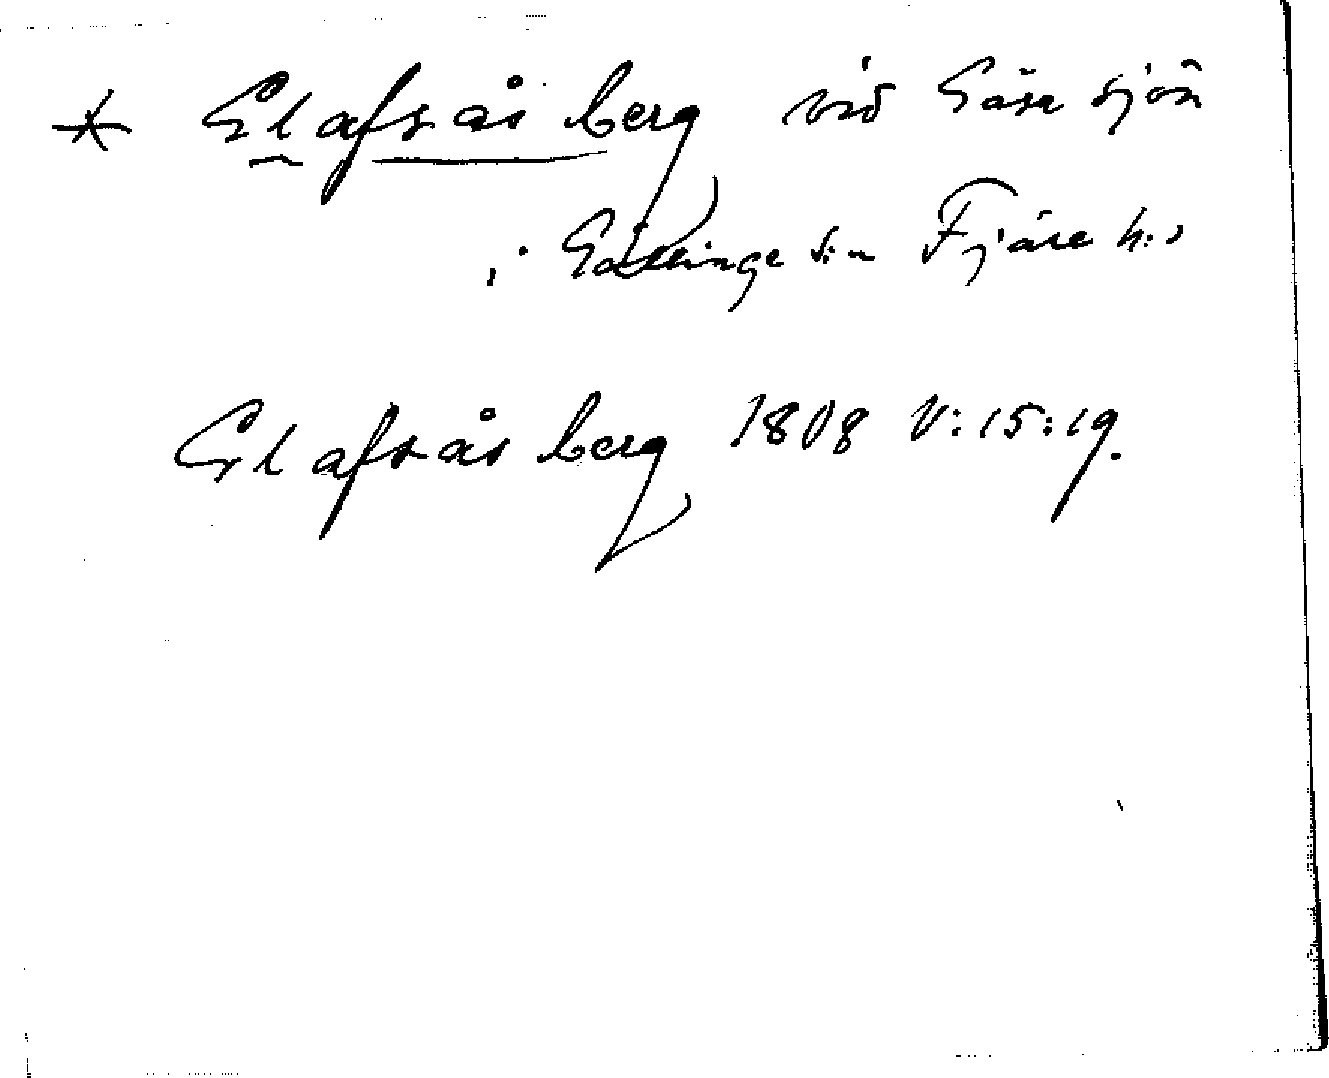 * Elafsås berg vid Gåsa sjön
i Gällinge s:n Fjäre h:d
Elafsås berg 1808 V:15:19.